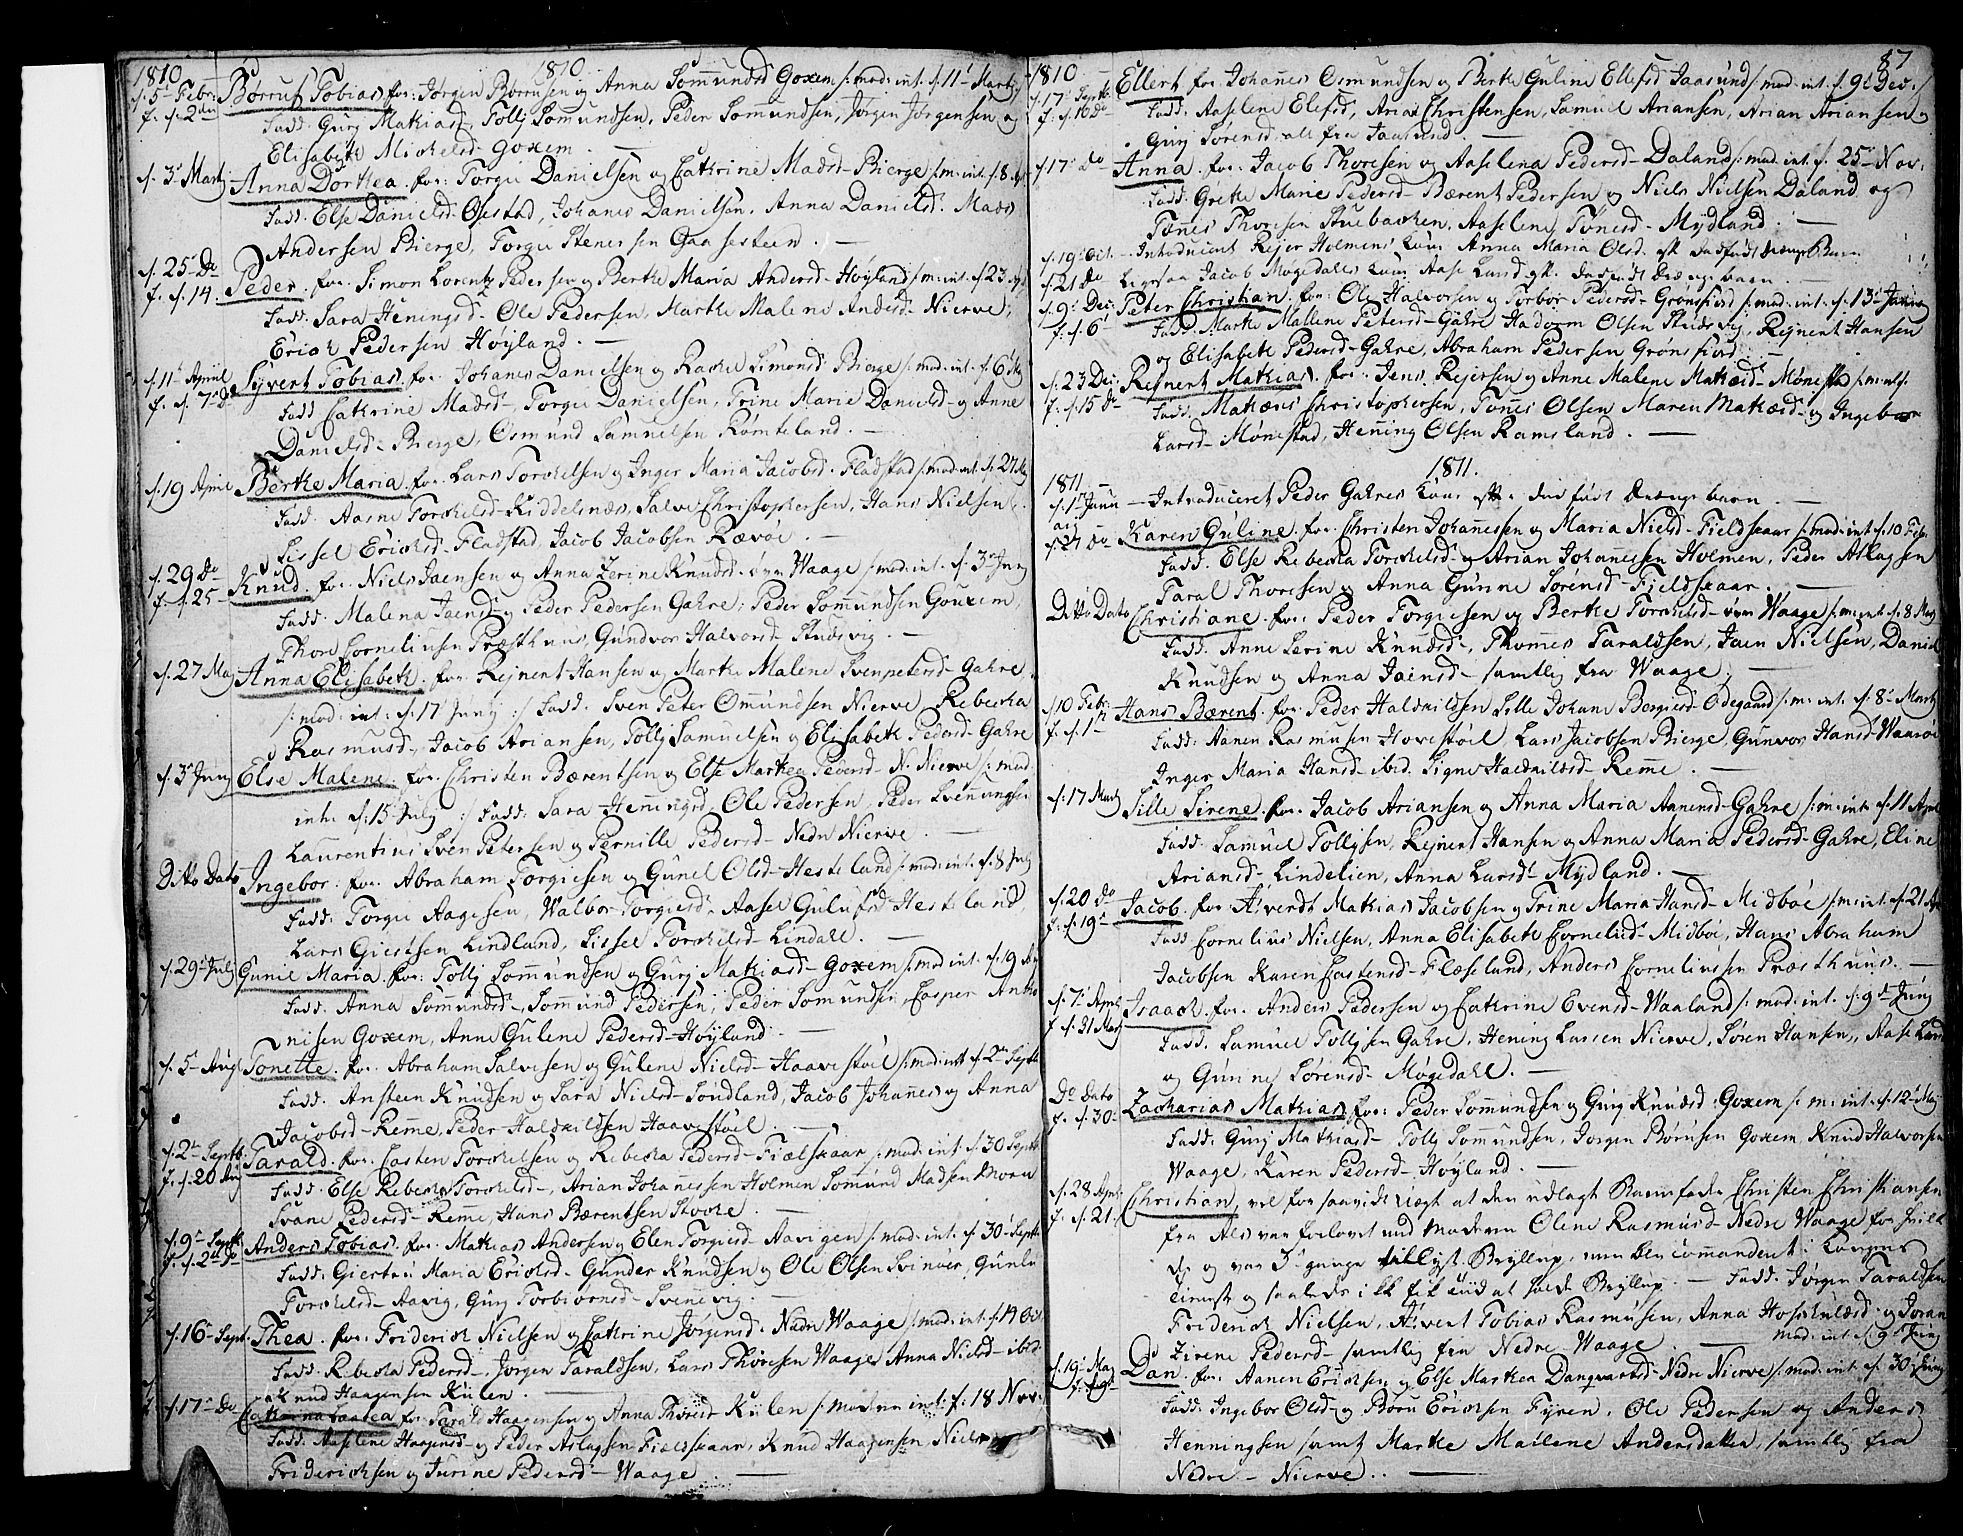 1810
1810
d. 5 Febr: Børruf Tobias for: Jørgen Børrusen og Anna Sommundsd Goxem /: mod: int. d. 11 Martz
f. d. 2den Fadd: Gurj Mathiasd, Tollj Somundsen, Peder Sommundsen, Jørgen Jørgensen og
Elisabeth Mickelsd Goxem. —
d. 3 Martz Anna Dorthea. for: Torgu Danielsen og Cathrine Madsd Bierge /: m: int. d. 8
Fadd: Else Danielsd Ofestad, Johanes Danielsen, Anna Danielsd. Mads
Andersen Bierge, Torgu Stenersen Gaasesteen. —
d. 25 Do Peder. for. Simon Lorentz Pedersen og Berthe Maria Andersd Høyland /: m: int. d. 23
f. d. 14. Fadd: Sara Heningsd Ole Pedersen, Marthe Malene Andersd Nierve,
Erick Pedersen Høyland. —
d. 11 April Syvert Tobias. for. Johanes Danielsen og Rachel Simonsd Bierge /: mod: int. d. 6
f. d. 7 Do Fadd Cathrine Madsd, Torgu Danielsen, Trine Marie Danielsd og Anne
Danielsd Bierge, Osmund Samuelsen Romteland. —
d. 19 April Berthe Maria. for. Lars Torckelsen og Inger Maria Jacobsd. Fladstad /: mod: int. d. 27
Fadd: Aasne Torckelsd Kiddelsnæs, Salve Christophersen, Hans Nielsen
Sissel Ericksd Fladstad, Jacob Jacobsen Rævøe. —
d. 29 Do Knud. for. Niels Jaensen og Anna Zerine Knudsd. øvre Waage /: mod: int. d. 3 Junj
f. d. 25 Fadd: Malena Jaensd og Peder Pedersen Gahre, Peder Sommundsen Gouxem,
Thore Corneliusen Præsthuus, Gundvor Halvorsd Studsvig. —
d. 27 Maj Anna Elisabeth. for. Rejnert Hansen og Marthe Malene Svenpetersd Gahre.
/: mod: int: d. 17 Junj :/ Fadd: Sven Peter Omundsen Nierve, Rebecka
Rasmusd, Jacob Ariansen, Tollj Samuelsen og Elisabeth Pedersd Gahre
d. 3 Junj Else Malene. for. Christen Bærentsen og Else Marthea Pedersd N. Nierve /: mod:
int. d. 15 Julj :/ Fadd: Sara Henningsd, Ole Pedersen, Peder Svenningsen
Laurentius Sven Petersen og Pernille Pedersd Nedre Nierve. —
Ditto Dato Ingebor: for. Abraham Torgiesen og Gunel Olsd Hesteland /: mod: int. d. 8 Julj
Fadd: Torgu Aagesen, Walbor Torgiesd, Aasel Gulufsd Hesteland
Lars Giertsen Lindland, Sissel Torckelsd Lindahl. —
d. 29 Julj Gunil Maria. for: Tollj Sommundsen og Gurj Mathiasd Goxem /: mod: int. d. 19
Fadd: Anna Sommundsd, Sommund Pedersen, Peder Somundsen, Casper Antho
nisen Goxem, Anne Gulene Pedersd Høyland. —
d. 5 Aug Tonette. for. Abraham Salvesen og Gulene Nielsd Haavestøel /: mod: int d. 2 Septb
Fadd. Ansteen Knudsen og Sara Nielsd Sondland, Jacob Johanes og Anna
Jacobsd Remme, Peder Haldvildsen Haavestøel. —
d. 2 Septb. Tarald. for. Casten Torckelsen og Rebecka Pedersd Fielskaar /: mod: int. d. 30 Septb
f. d. 20 Aug Fadd. Else Rebecka Torckelsd, Arian Johannessen Holmen Somund Madsen
Svane Pedersd Remme, Hans Bærentsen Stoore. —
d. 9 Septb Anders Tobias. for. Mathias Andersen og Elen Torgiesd Aavigen /: mod: int. d. 30 Septb
f. d. 2 Do Fadd: Giertru Maria Ericksd Gunder Knudsen og Ole Olsen Svinøer, Gunild
Torckelsd Aavig, Gurj Torbiornsd Svenevig. —
d. 16 Sept. Thea. for. Friderick Nielsen og Cathrine Jørgensd. Nedre Waage /: mod: int. d. 14 Oct
Fadd. Rebecka Pedersd, Jørgen Taraldsen, Lars Thoresen Waage, Anna Nielsd ibid
Knud Haagensen Kulen. —
d. 17 Do for Tarald Haagensen og Anna Thoresd Kulen /: moderen int. d. 18 Nov.
Fadd. Aaselene Haagensd og Peder Aslagsen Fielskaar, Knud Haagensen, Niels
Fridericksen og Jurine Pedersd Waage. —
87
1810
d. 17 Septb. Ellert for. Johanes Osmundsen og Berthe Guline Ellefsd Jaasund /: mod: int. d. 9 Dec. :/
f. d. 10 Do Fadd: Aaselene Elefsd, Arias Christensen, Samuel Ariansen, Arian Ariansen og
Gurj Sorensd alle fra Jaasund. —
d. 17 do Anna. for. Jacob Thoresen og Aaselena Pedersd Daland /: mod: int. d. 25 Nov:
Fadd: Grethe Marie Pedersd Bærent Pedersen og Niels Nielsen Daland og
Tønes Thoresen Stuebacken, Aaselene Tønesd Mydland. —
d. 19 Oct. Introduceret Rejer Holmens Kone Anna Maria Olsd. Børn
d. 21 Do Ligesaa Jacob Møgedals Kone Aase Larsd barn.
d. 9 Dec. Peter Christian. for. Ole Halvorsen og Torbor Pedersd Grønsfiord /: mod: int. d. 13 Janv
f. d. 6 Fadd. Marthe Mallene Petersd Gahre Hadvorm Olsen Studsvig, Rejnert Hansen
og Elisabeth Pedersd Gahre, Abraham Pedersen Grønsfiord. —
d. 23 Dec. Rejnert Mathias. for. Jens Rejersen og Anne Malene Mathæsd Mønestad /: m: int d.
f. d. 15 Do Fadd. Mathæus Christophersen, Tønes Olsen Maren Mathæsd og Ingebor
Larsd Mønestad, Hening Olsen Ramsland. —
1811.
1811.
d. 1 Janu Introduceret Peder Gahres Kone drenge barn. —
d. 27 do Karen Guline. for. Christen Johanessen og Maria Nielsd Fieldskaar /: mod: int d. 10 Febr.
Fadd: Else Rebecka Torckelsd og Arian Johanessen Holmen, Peder Aslagsen
Taral Thoresen og Anna Gunne Sorensd Fieldskaar. —
Ditto Dato Christiane. for. Peder Torgiesen og Berthe Torckelsd Waage /: m: int d. 8
Fadd: Anne Serine Knudsd, Thomes Taraldsen, Jaen Nielsen, Daniel
Knudsen og Anna Jaensd samtlig fra Waage, —
d. 10 Febr. Hans Bærent. for. Peder Haldvildsen Sille Johane Bergesd Ødegaard /: m: int. d. 8 Martz
f. d. 1 Fadd: Aanen Rasmusen Hovestøel Lars Jacobsen Bierge, Gunvor Hansd Waarøe
Inger Maria Hansd ibid. Signe Haldvildsd Remme. —
d. 17 Martz Sille Sirene. for. Jacob Ariansen og Anna Maria Aanensd Gahre /: m: int d. 11 April
Fadd: Samuel Tollejsen, Rejnert Hansen og Anna Maria Pedersd Gahre, Eline
Ariansd Lindelien, Anna Larsd Mydland. —
d. 20 Do Jacob. for. Mathias Jacobsen og Trine Maria Hansd Midboe /: m: int. d. 21
f. d. 19 Fadd Cornelius Nielsen, Anna Elisabeth Cornelisd Midboe, Hans Abraham
Jacobsen Karen Castensd Flæseland, Anders Corneliusen Præsthuus. —
d. 7 April Isaach. for. Anders Pedersen og Cathrine Evensd Waaland /: mod: int. d. 9 Junj
f. d. 31 Martz Fadd. Samuel Tollejsen Gahre, Hening Larsen Nierve, Søren Hansen, Aase Larsd
og Gunne Sørensd Møgedahl. —
Do Dato Zacharias Mathias. for: Peder Sommundsen og Gurj Knudsd Goxem /: m: int. d. 12 Maj
f. d. 30 Fadd: Gurj Mathiasd, Tollj Sommundsen, Jorgen Børusen Goxem, Knud Halvorsen
Waage, Karen Pedersd Høyland. —
d. 28 April Christian, at den udlagt Barnefader Christen Christiansen
f. d. 21. fra Als var forlovet med Moderen Olene Rasmusd Nedre Waage for
de og var 3 gange tillyst Bryllup, men blev commanderet i Kongens
Tieneste og saaledes ikke fik tiid at holde Bryllup. — Fadd. Jørgen Taraldsen
Friderick Nielsen, Tobias Rasmusen, Anna Hoskuldsd og Joran
Zirene Pedersd samtlig fra Nedre Waage. — mod. int d. 9 Junj
d. 19 Maj Dan. for. Aanen Ericksen og Else Marthea Danqvartsd Nedre Nierve /: mod: int d. 30 Junj
Fadd: Ingebor Olsd og Børu Ericksen Fyren, Ole Pedersen og Anders
Henningsen samt Marthe Malene Andersdatter, samtlig fra
Nedre Nierve. —